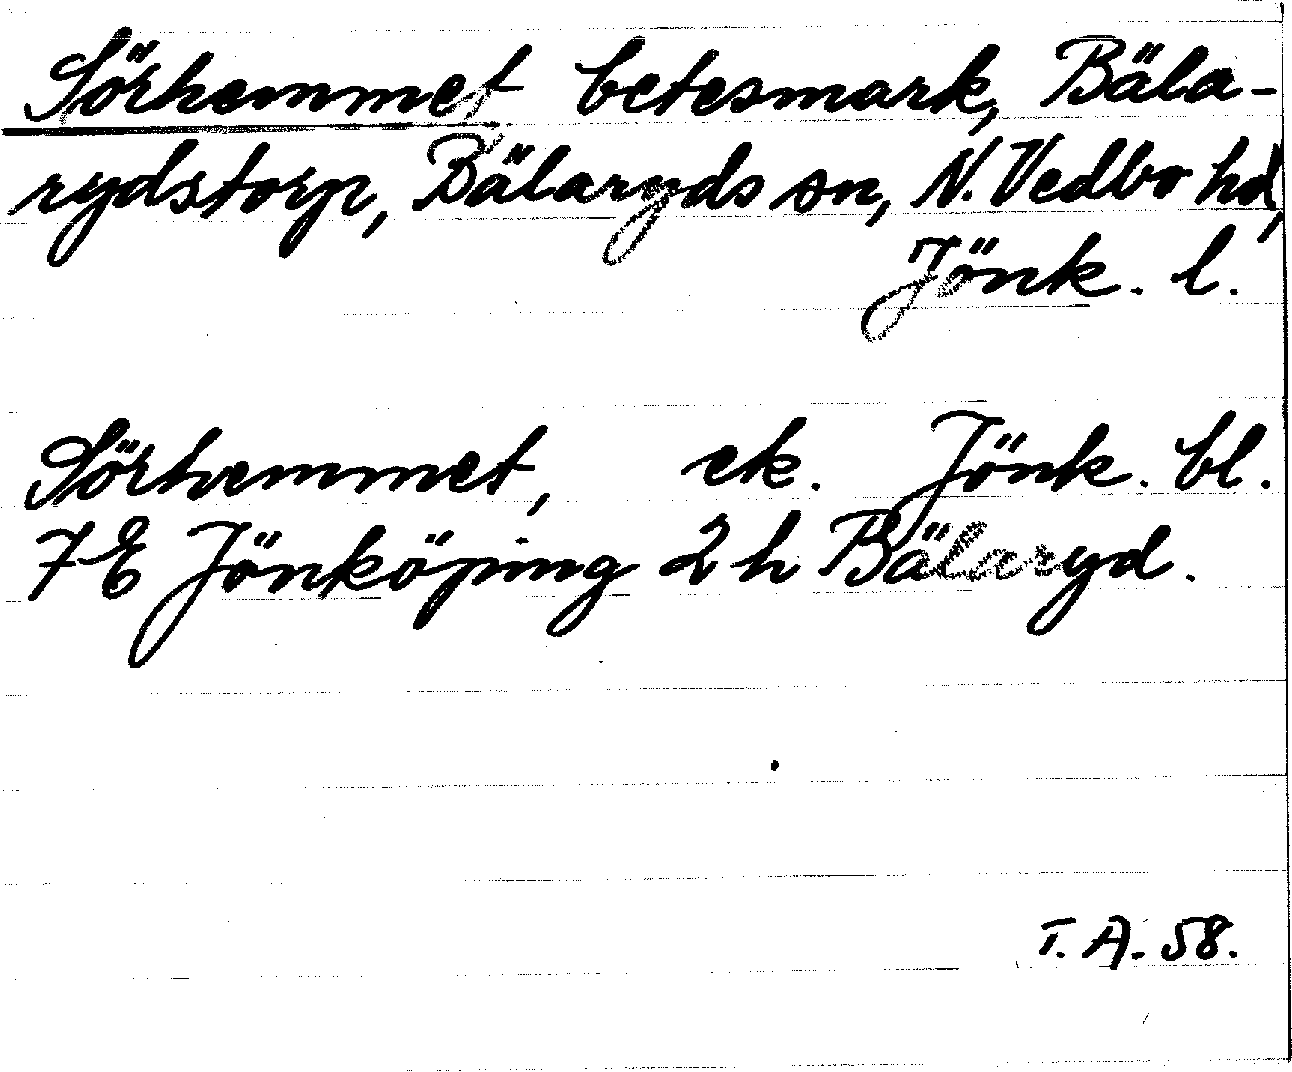 Sörhemmet betesmark, Bäla-
rydstorp, Bälaryds sn, N. Vedbo hd,
Jönk. l.
Sörhemmet, ek. Jönk. bl.
7E Jönköping 2 h Bälaryd.
T. A. 58.